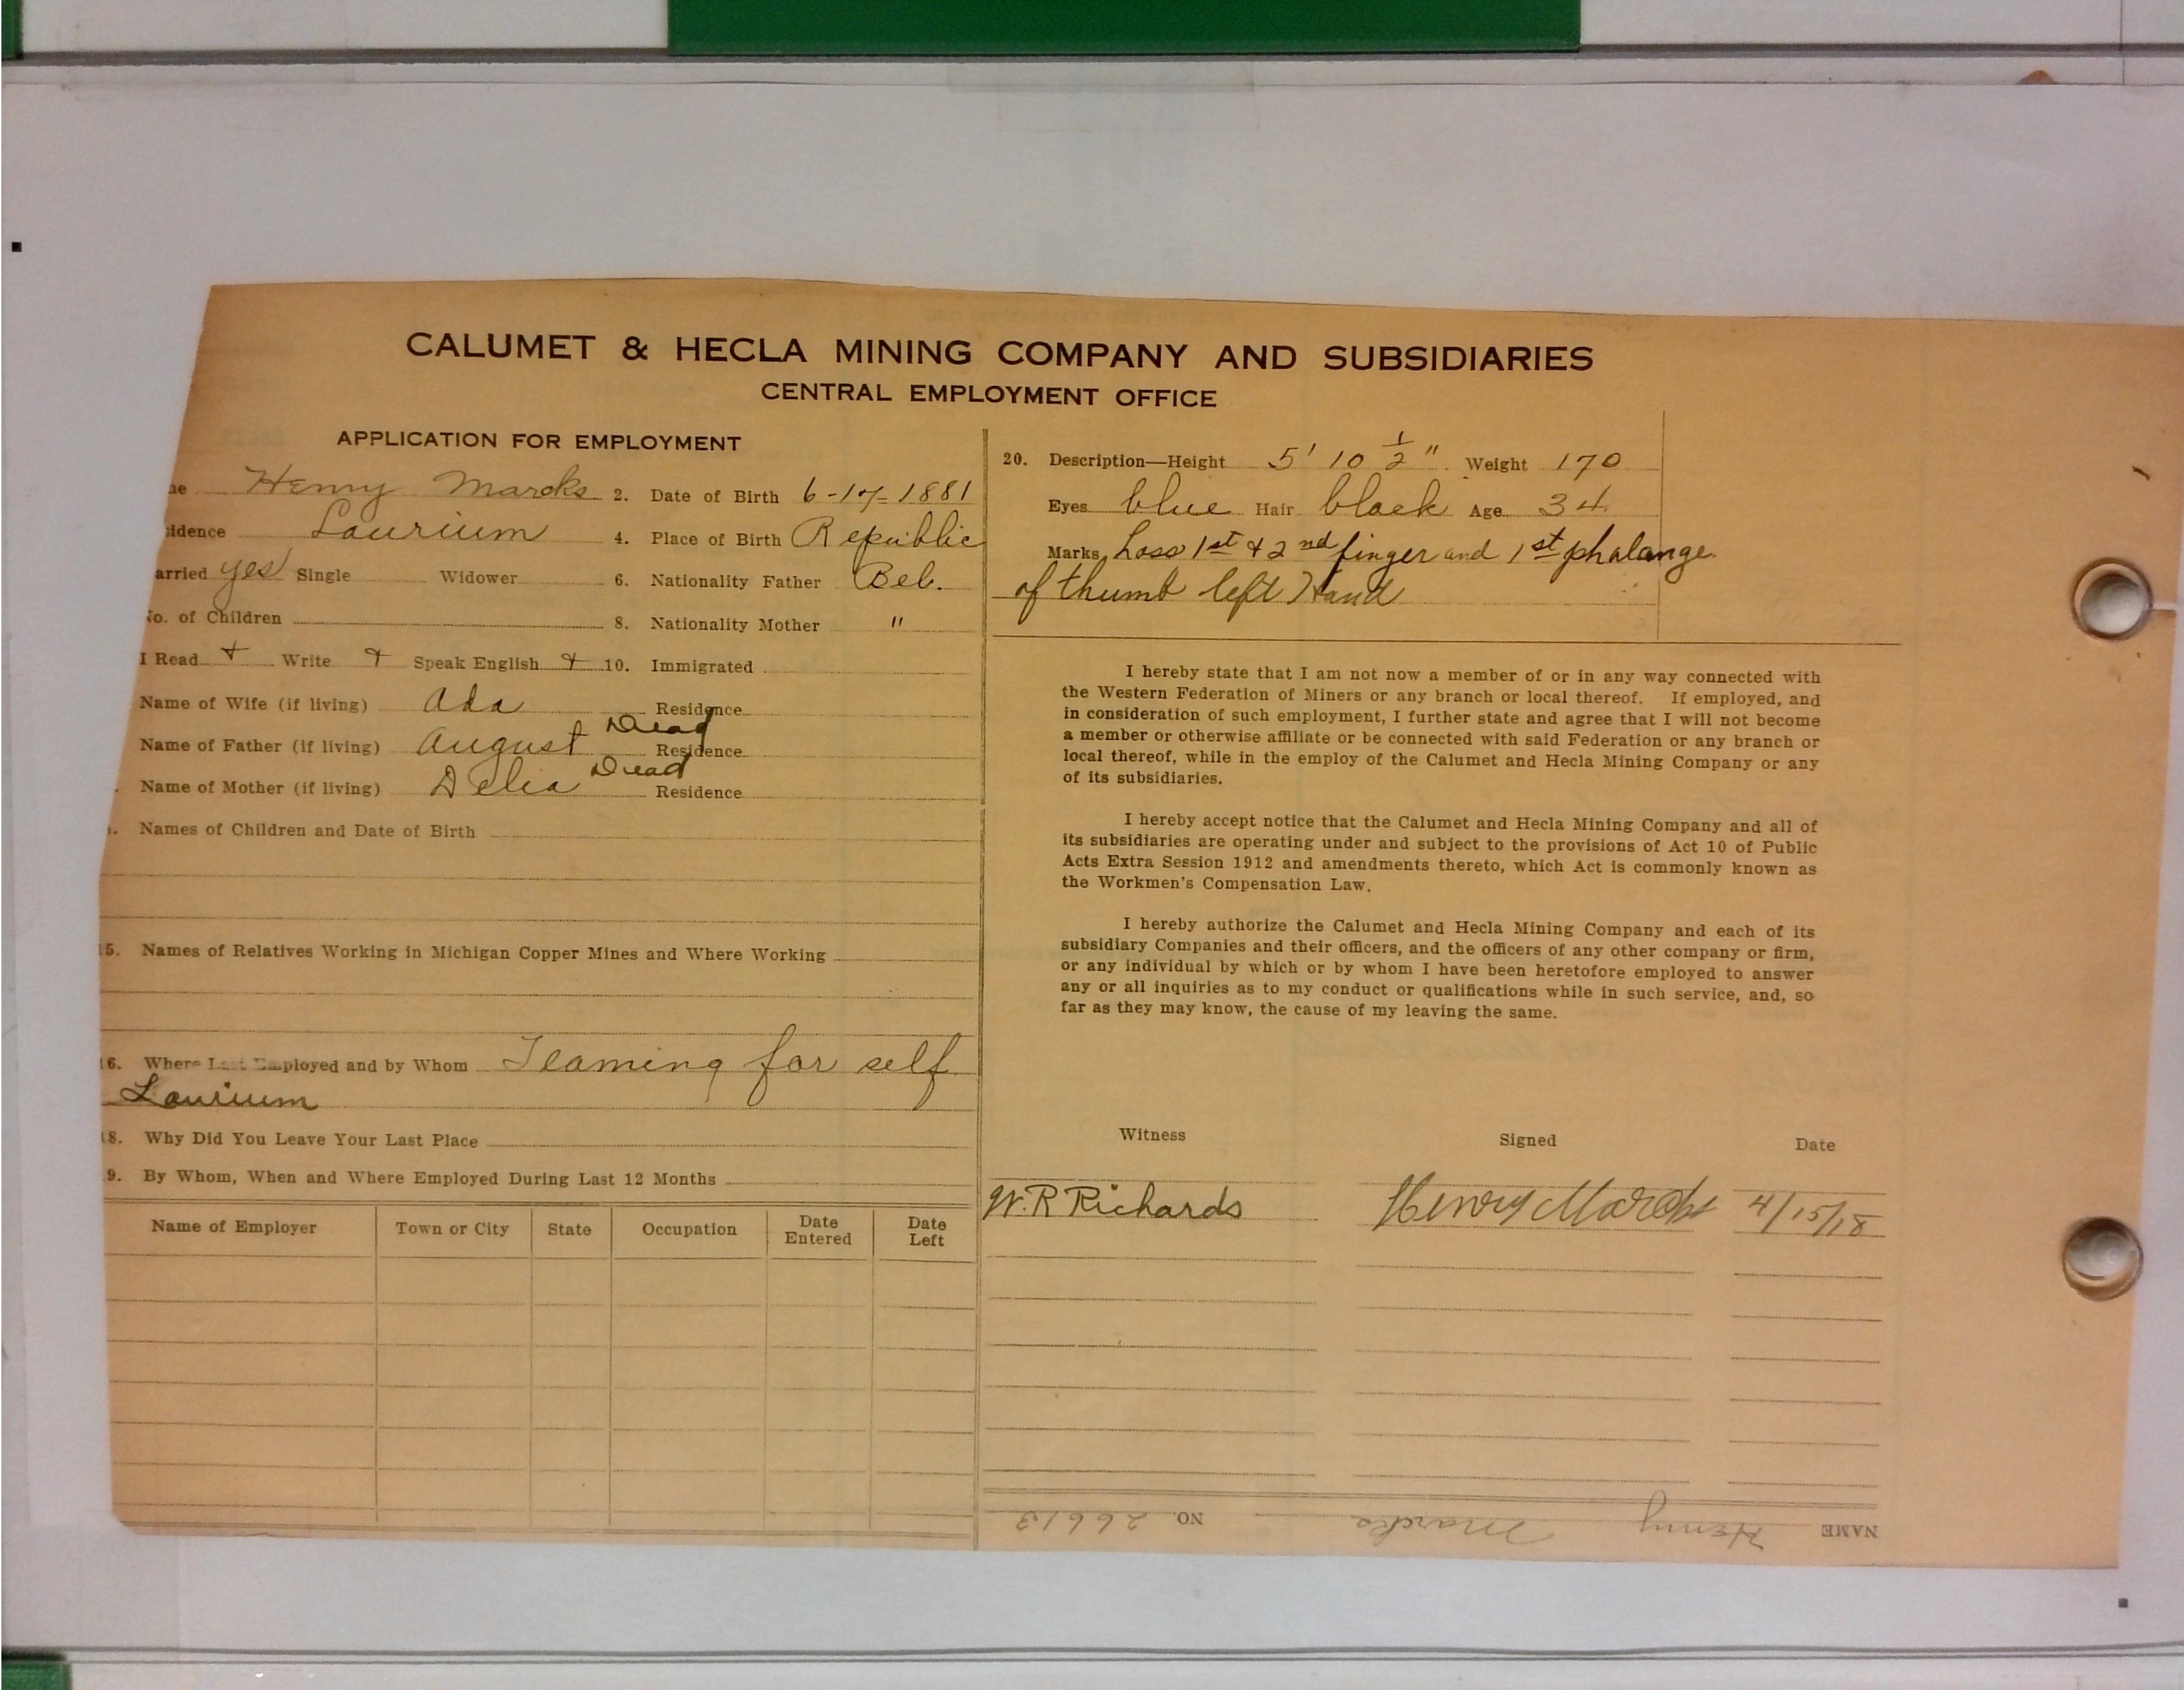 CALUMET & HECLA MINING COMPANY AND SUBSIDIARIES
CENTRAL EMPLOYMENT OFFICE
APPLICATION FOR EMPLOYMENT
me Henry Marcks 2. Date of Birth 6-17-1881
idence Laurium 4. Place of Birth Republic
arried yes Single Widower 6. Nationality Father Bel.
No. of Children 8. Nationality Mother "
I Read + Write + Speak English + 10. Immigrated
Name of Wife (if living) Ada Residence
Name of Father (if living) August Dead Residence
Name of Mother (if living) Delia Dead Residence
Names of Children and Date of Birth
15. Names of Relatives Working in Michigan Copper Mines and Where Working
16. Where Last Employed and by Whom Teaming for self
Laurium
18. Why Did You Leave Your Last Place
9. By Whom, When and Where Employed During Last 12 Months
Name of Employer Town or City State Occupation Date Entered Date Left
20. Description—Height 5' 10 1/2" Weight 170
Eyes blue Hair black Age 34
Marks Loss 1st & 2nd finger and 1st phalange
of thumb left Hand
I hereby state that I am not now a member of or in any way connected with
the Western Federation of Miners or any branch or local thereof. If employed, and
in consideration of such employment, I further state and agree that I will not become
a member or otherwise affiliate or be connected with said Federation or any branch or
local thereof, while in the employ of the Calumet and Hecla Mining Company or any
of its subsidiaries.
I hereby accept notice that the Calumet and Hecla Mining Company and all of
its subsidiaries are operating under and subject to the provisions of Act 10 of Public
Acts Extra Session 1912 and amendments thereto, which Act is commonly known as
the Workmen's Compensation Law.
I hereby authorize the Calumet and Hecla Mining Company and each of its
subsidiary Companies and their officers, and the officers of any other company or firm,
or any individual by which or by whom I have been heretofore employed to answer
any or all inquiries as to my conduct or qualifications while in such service, and, so
far as they may know, the cause of my leaving the same.
Witness Signed Date
W. R Richards Henry Marcks 4/15/18
NAME Henry Marcks NO. 26613